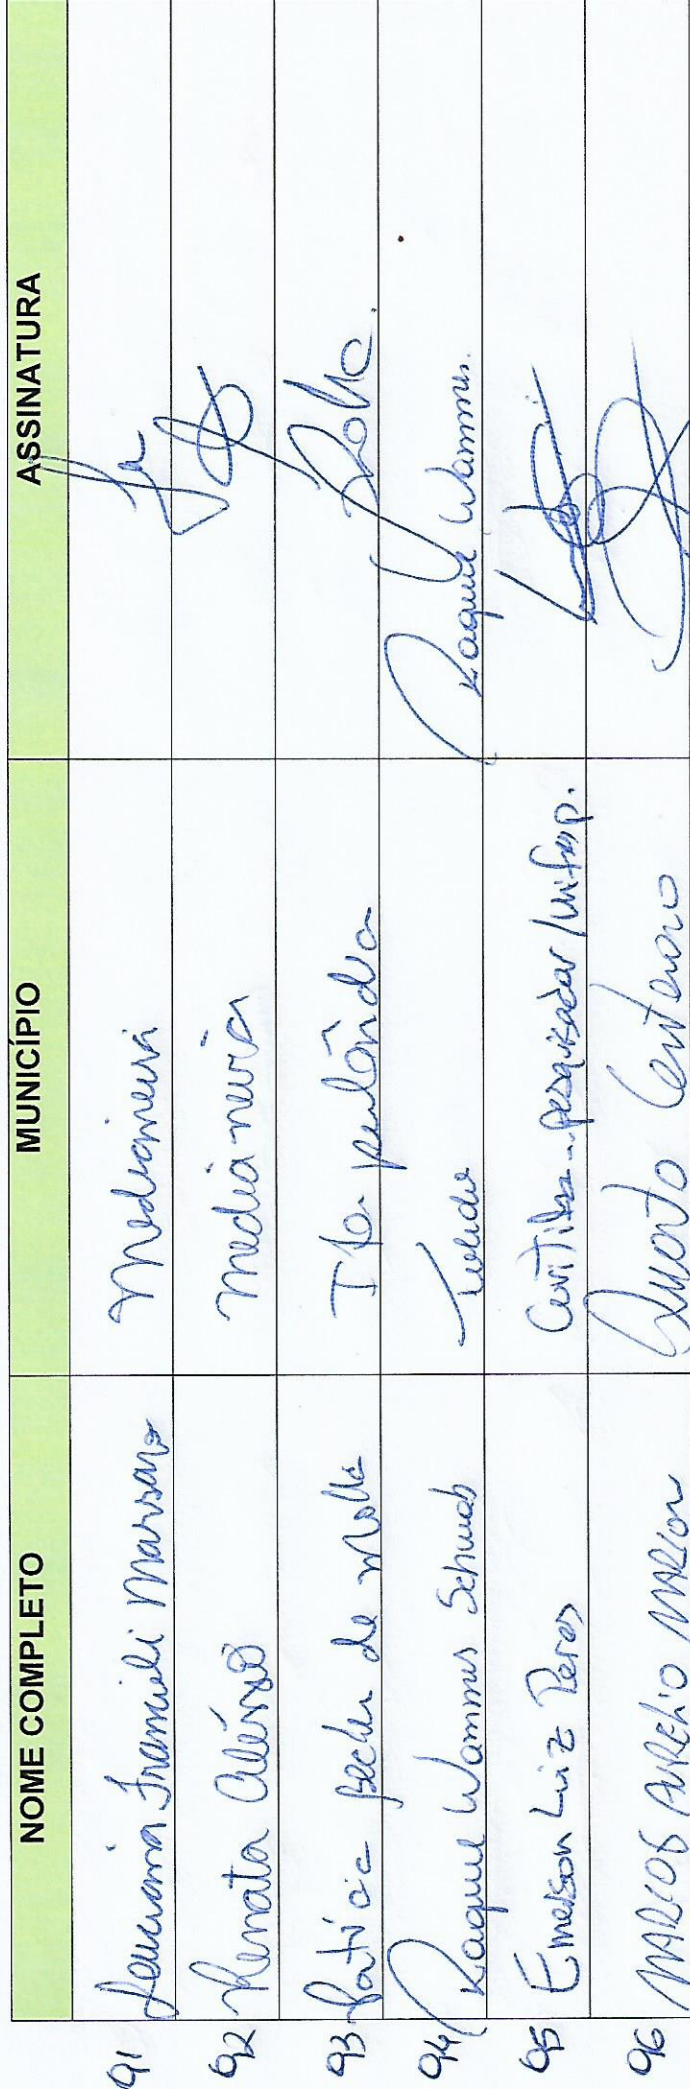 NOME COMPLETO MUNICÍPIO ASSINATURA
91 Franciele Marsaro Medianeira
92 Renata Medianeira
93 Patrícia de Molla Itaipulândia
94 Raquel Wammes Schwab Toledo Raquel Wammes.
95 Emerson Luiz Peres Curitiba - pesquisador /
96 MARCOS AURELIO MARION Quarto Centenario